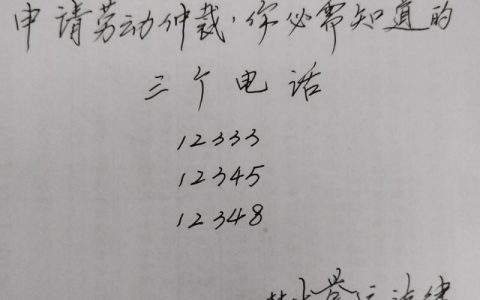 申请劳动仲裁，你必需知道的
三个电话
12333
12345
12348